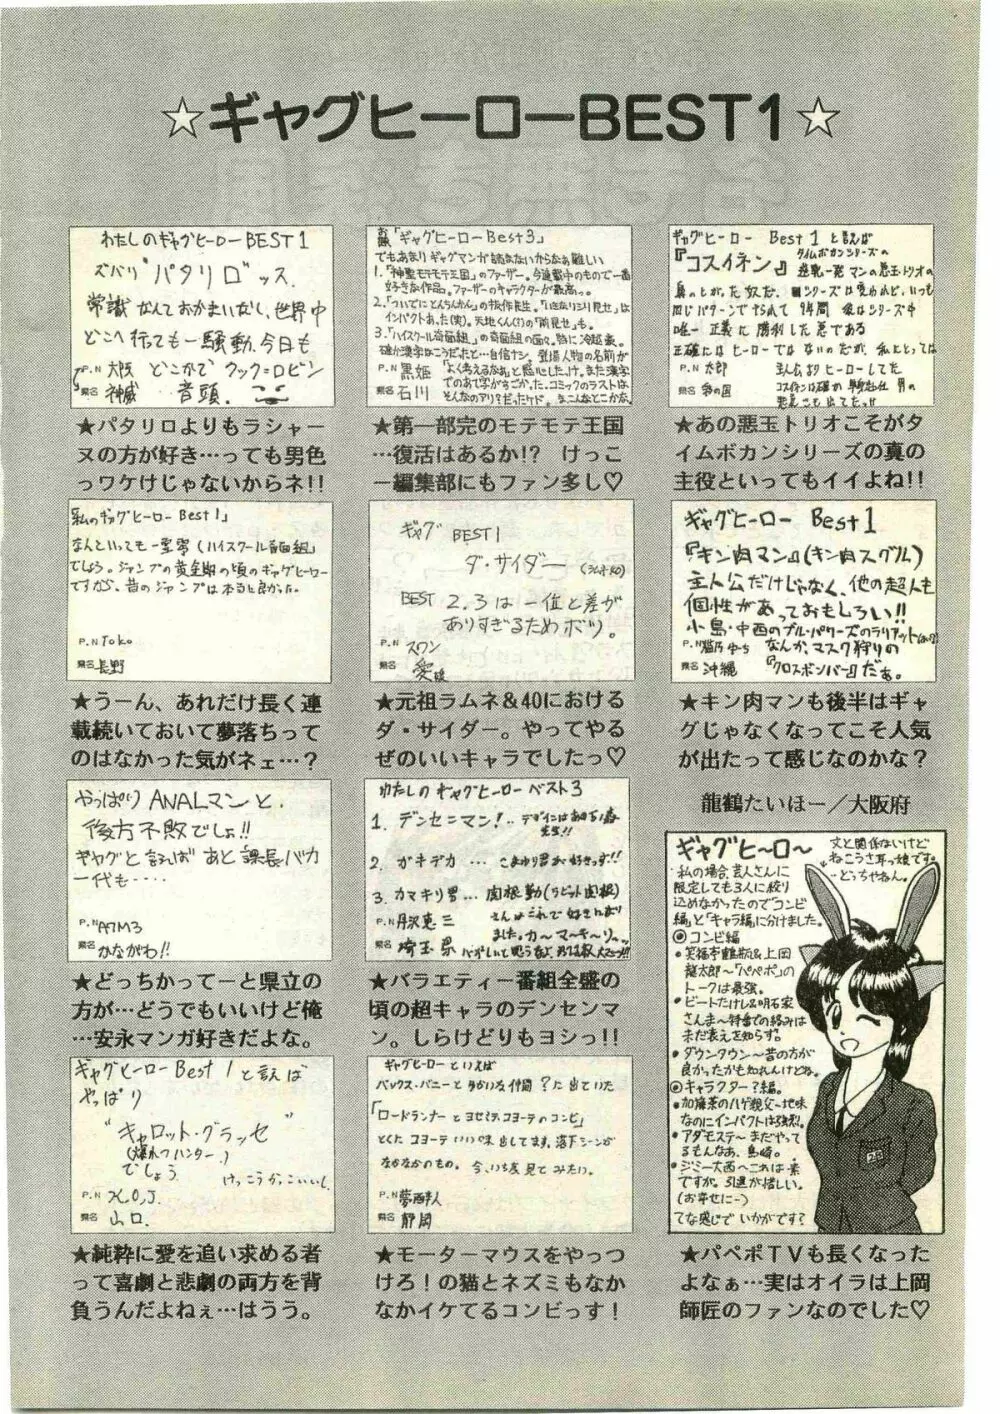 ☆ギャグヒーローBEST1☆
わたしのギャグヒーローBEST1
ズバリ"パタリロ"ッス.
常識なんておかまいなし,世界中
どこへ行っても一騒動,今日も
P.N 大阪 どこかで クックロビン
県名 神威 音頭.
★パタリロよりもラシャー
ヌの方が好き…っても男色
っワケけじゃないからネ!!
「ギャグヒーローBest3」
でもあまりギャグマンガ読まないからなぁ難しい
1.「神聖モテモテ王国」のファーザー。今連載中のもので一番
好きな作品。ファーザーのキャラクターが最高っ。
2.「ついでにとんちんかん」の抜作先生。「いきなり尻見せ」は
インパクトあった(笑)。天地くん(!?)の「前見せ」も。
3.「ハイスクール奇面組」の奇面組の面々。特に冷越豪。
確か漢字はこうだったと…自信ナシ。登場人物の名前が
P.N 黒姫 「よく考えるなぁ」と感心したっけ。また漢字
でのあて字がすごかった。コミックのラストは
県名 石川 そんなのアリ?だったケド。
★第一部完のモテモテ王国
…復活はあるか!? けっこ
ー編集部にもファン多し♡
ギャグヒーロー Best 1 と言えば
『コスイネン』タイムボカンシリーズの
逆乱一発マンの悪玉トリオの
同じパターンでやられて9年間
唯一 正義に勝利した悪である
正確には ヒーローでは ないのだが, 私にとっては
P.N 太郎 主人公よりヒーローしてた
県名
★あの悪玉トリオこそがタ
イムボカンシリーズの真の
主役といってもイイよね!!
「私のギャグヒーロー Best1」
なんといっても一堂零(ハイスクール奇面組)
でしょう。ジャンプの黄金期の頃のギャグヒーロー
ですから、昔のジャンプは本当に良かった。
P.N Toko
県名 長野
★うーん、あれだけ長く連
載続いておいて夢落ちって
のはなかった気がネェ…?
ギャグ BEST1
ダ・サイダー
BEST 2.3は一位と差が
ありすぎるためボツ。
P.N スワン
県名 愛媛
★元祖ラムネ&40における
ダ・サイダー。やってやる
ぜのいいキャラでしたっ♡
ギャグヒーロー Best1
『キン肉マン』(キン肉スグル)
主人公だけじゃなく、他の超人も
個性があっておもしろい!!
小島・中西のブル・パワーズのラリアット
P.N なんか、マスク狩りの
県名 沖縄 『クロスボンバー』だぁ。
★キン肉マンも後半はギャ
グじゃなくなってこそ人気
が出たって感じなのかな?
やっぱりANALマンと、
後方不敗でしょ!!
ギャグと言えば あと課長バカ
一代も‥‥
P.N A7M3
県名 かながわ!!
★どっちかってーと県立の
方が…どうでもいいけど俺
…安永マンガ好きだよな。
わたしのギャグヒーローベスト3
1. デンセンマン!‥ デザインは
先生!!
2. ガキデカ … こまわり君が好きっす!!
3. カマキリ男… 関根勤(ラビット関根)
P.N 丹沢恵三 さんはこれで好きになり
ました。カ〜マ〜キ〜リ〜ッ
県名 埼玉県
★バラエティー番組全盛の
頃の超キャラのデンセンマ
ン。しらけどりもヨシっ!!
龍鶴たいほー/大阪府
ギャグヒ〜ロ〜
文と関係ないけど
ねこうさ耳っ娘です。
…どっちやねん。
私の場合、芸人さんに
限定しても3人に絞り
込めなかったのでコンビ
編」と「キャラ編」に分けました。
◎コンビ編
・笑福亭鶴瓶&上岡
龍太郎〜「パペポ」の
トークは最強。
・ビートたけし&明石家
さんま〜特番での絡みは
未だ衰えを知らず。
・ダウンタウン〜昔の方が
良かったかも知れんけどね。
◎キャラクター?編。
・加藤茶のハゲ親父〜地味
なのにインパクトは強烈。
・アダモステ〜まだやって
るもんなあ、島崎。
・ジミー大西〜これは素
ですが。引退が惜しい。
(お幸せに〜)
てな感じで いかがです?
★パペポTVも長くなった
よなぁ…実はオイラは上岡
師匠のファンなのでした♡
ギャグヒーローBest 1 と言えば
やっぱり
"キャロット・グラッセ"
(爆れつハンター)
でしょう
けっこうかっこいいし。
P.N X.O.J.
県名 山口.
★純粋に愛を追い求める者
って喜劇と悲劇の両方を背
負うんだよねぇ…はうう。
ギャグヒーロー といえば
バックス・バニーとゆかいな仲間?に出ていた
「ロードランナーとヨセミテ、コヨーテのコンビ」
とくに コヨーテいい味出してます。落下シーンが
なかなかのもの。今、いち度見てみたい。
P.N
県名 静岡
★モーターマウスをやっつ
けろ!の猫とネズミもなか
なかイケてるコンビっす!